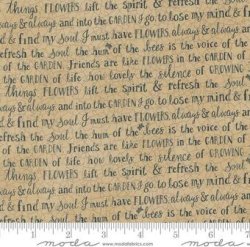 things FLOWERS lift the Spirit & refresh the Soul
always & always and into the GARDEN I go to lose my mind & f
nd & find my Soul I must have FLOWERS always & always an
refresh the Soul the hum of the bees is the voice of the
of the GARDEN. Friends are like FLOWERS in the GARDEN
in the GARDEN of life how lovely the silence of GROWING
things FLOWERS lift the Spirit & refresh the Soul
ways & always and into the GARDEN I go to lose my mind & fi
d & find my Soul I must have FLOWERS always & always and
efresh the Soul the hum of the bees is the voice of the
of the GARDEN. Friends are like FLOWERS in the GARDEN of
n the GARDEN of life how lovely the silence of GROWING
things FLOWERS lift the Spirit & refresh the Soul
ays & always and into the GARDEN I go to lose my mind & fin
& find my Soul I must have FLOWERS always & always and i
fresh the Soul the hum of the bees is the voice of the
1 2 3 4 5 6
moda www.modafabrics.com moda